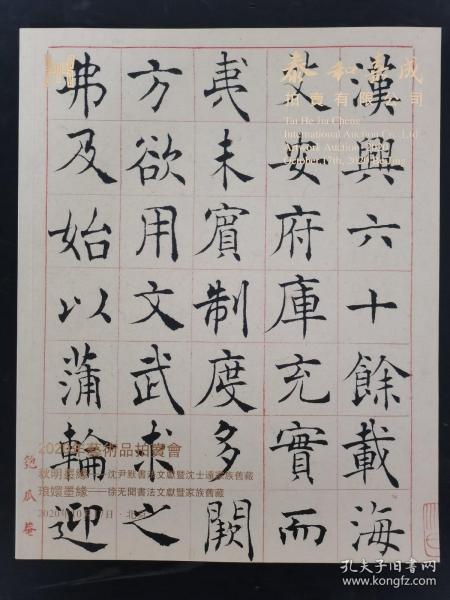 漢興六十餘載海
乂安府庫充實而
夷未賓制度多闕
方欲用文武求之
弗及始以蒲輪迎
泰和嘉成
拍賣有限公司
Tai He Jia Cheng
International Auction Co., Ltd
Artwork Auction, 2020
October 17th, 2020 Beijing
2020年藝術品拍賣會
秋明墨緣——沈尹默書法文獻暨沈士遠家族舊藏
琅嬛墨緣——徐无聞書法文獻暨家族舊藏
匏瓜菴
孔夫子旧书网
www.kongfz.com